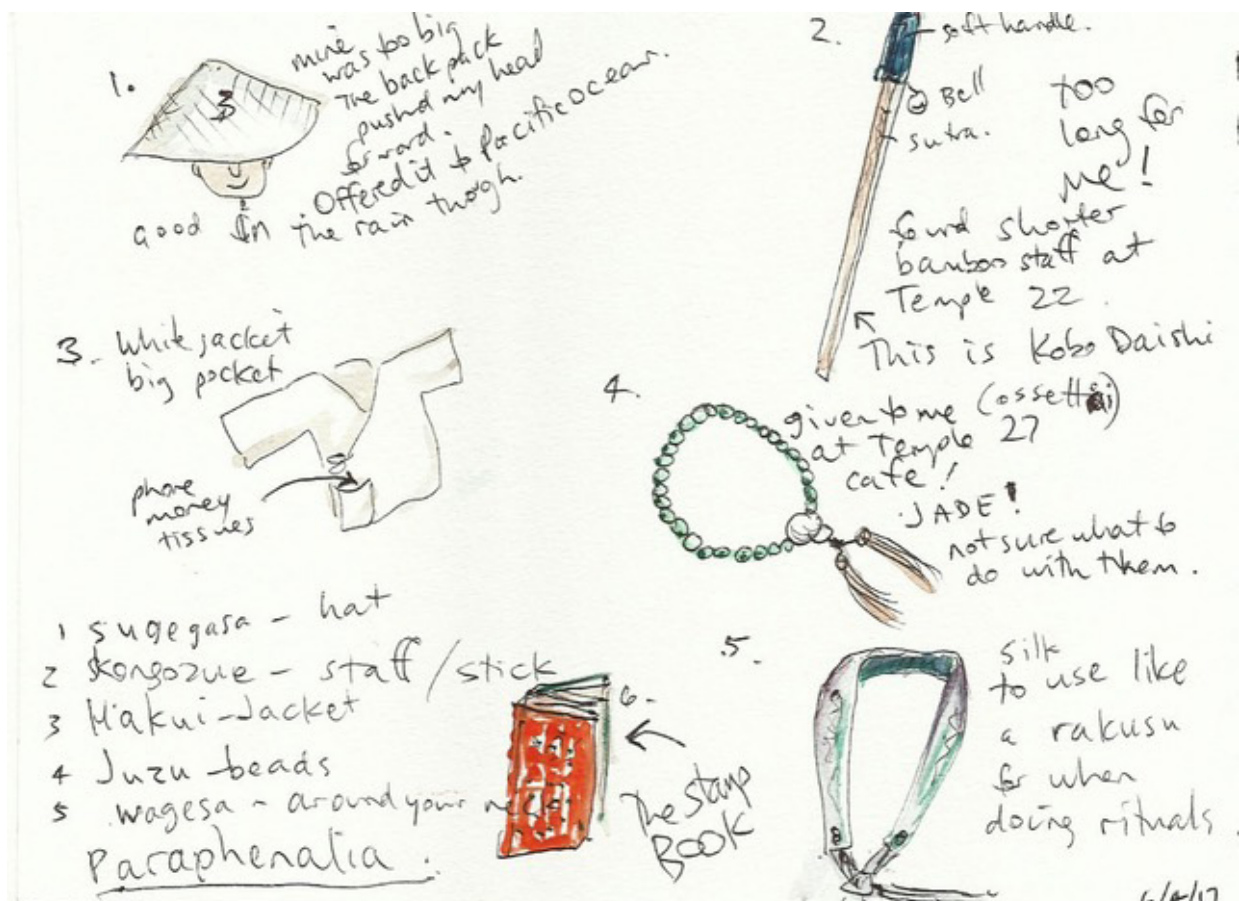 1.
mine
was too big
The back pack
pushed my head
forward.
Offered it to Pacific Ocean.
good in the rain though.
2.
soft handle.
Bell
sutra.
too
long for
me!
found shorter
bamboo staff at
Temple 22.
This is Kobo Daishi
3. White jacket
big pocket
phone
money
tissues
4.
given to me (ossettai)
at Temple 27
cafe!
JADE!
not sure what to
do with them.
1 sugegasa - hat
2 Kongozue - staff/stick
3 Hakui - Jacket
4 Juzu - beads
5 wagesa - around your neck
Paraphenalia.
6.
The stamp
BOOK
5.
silk
to use like
a rakusu
for when
doing rituals